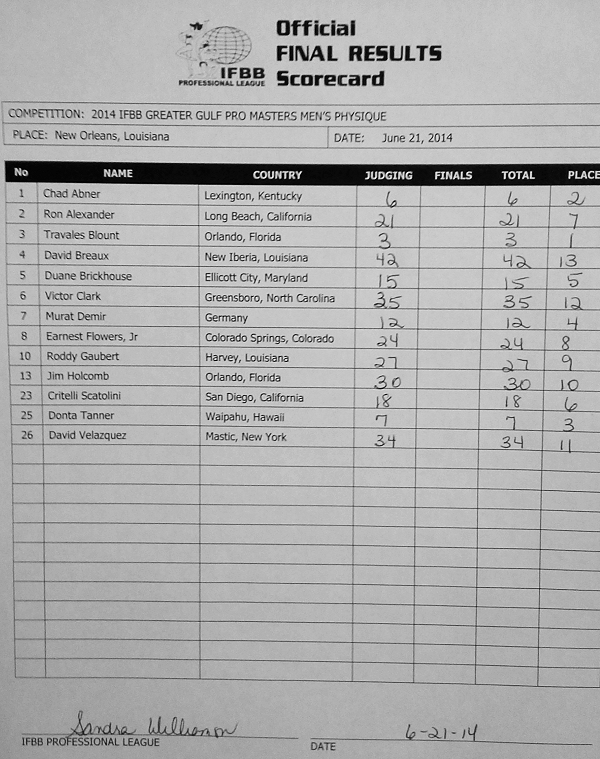 Official
FINAL RESULTS
Scorecard
IFBB
PROFESSIONAL LEAGUE
COMPETITION: 2014 IFBB GREATER GULF PRO MASTERS MEN'S PHYSIQUE
PLACE: New Orleans, Louisiana DATE: June 21, 2014
No NAME COUNTRY JUDGING FINALS TOTAL PLACE
1 Chad Abner Lexington, Kentucky 6 6 2
2 Ron Alexander Long Beach, California 21 21 7
3 Travales Blount Orlando, Florida 3 3 1
4 David Breaux New Iberia, Louisiana 42 42 13
5 Duane Brickhouse Ellicott City, Maryland 15 15 5
6 Victor Clark Greensboro, North Carolina 35 35 12
7 Murat Demir Germany 12 12 4
8 Earnest Flowers, Jr Colorado Springs, Colorado 24 24 8
10 Roddy Gaubert Harvey, Louisiana 27 27 9
13 Jim Holcomb Orlando, Florida 30 30 10
23 Critelli Scatolini San Diego, California 18 18 6
25 Donta Tanner Waipahu, Hawaii 7 7 3
26 David Velazquez Mastic, New York 34 34 11
Sandra Williamson 6-21-14
IFBB PROFESSIONAL LEAGUE DATE